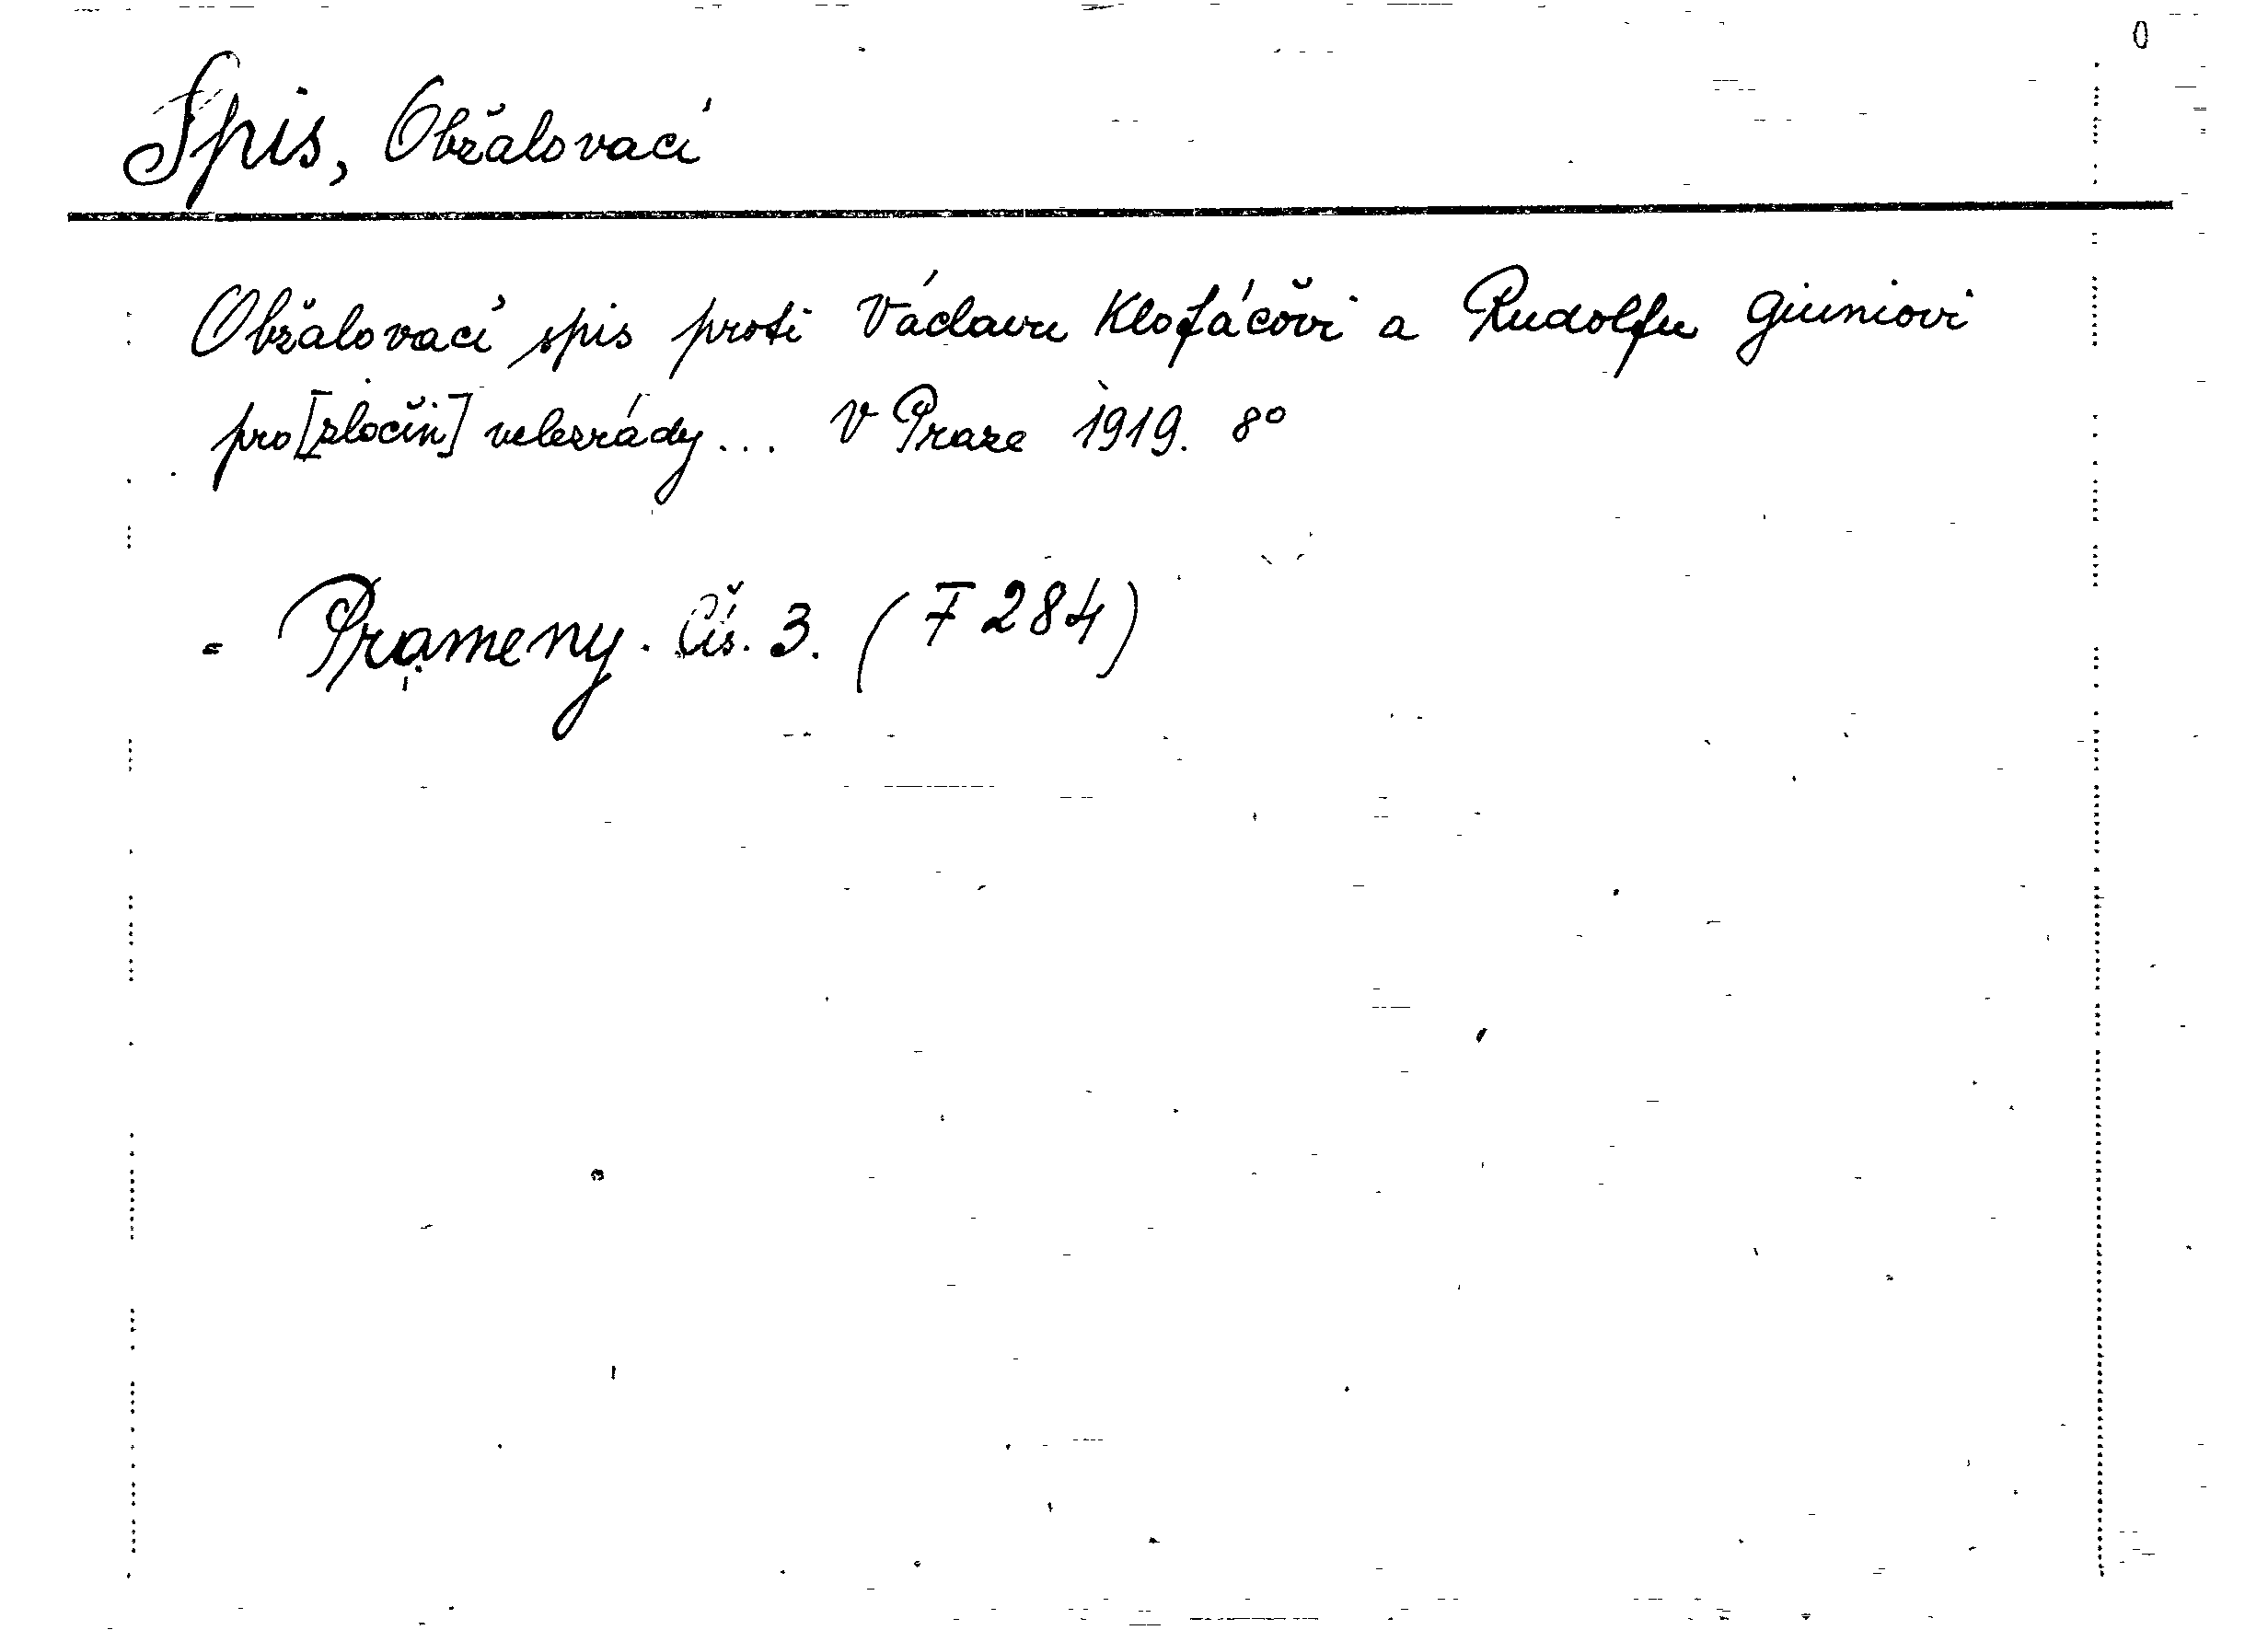 Spis, Obžalovací
Obžalovací spis proti Václavu Klofáčovi a Rudolfu Giuniovi
pro [zločin] velezrády... V Praze 1919. 8°
= Prameny. Čís. 3. (F 284)